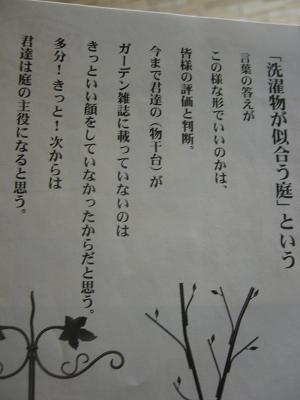 「洗濯物が似合う庭」という
言葉の答えが
この様な形でいいのかは、
皆様の評価と判断。
今まで君達の（物干台）が
ガーデン雑誌に載っていないのは
きっといい顔をしていなかったからだと思う。
多分！きっと！次からは
君達は庭の主役になると思う。